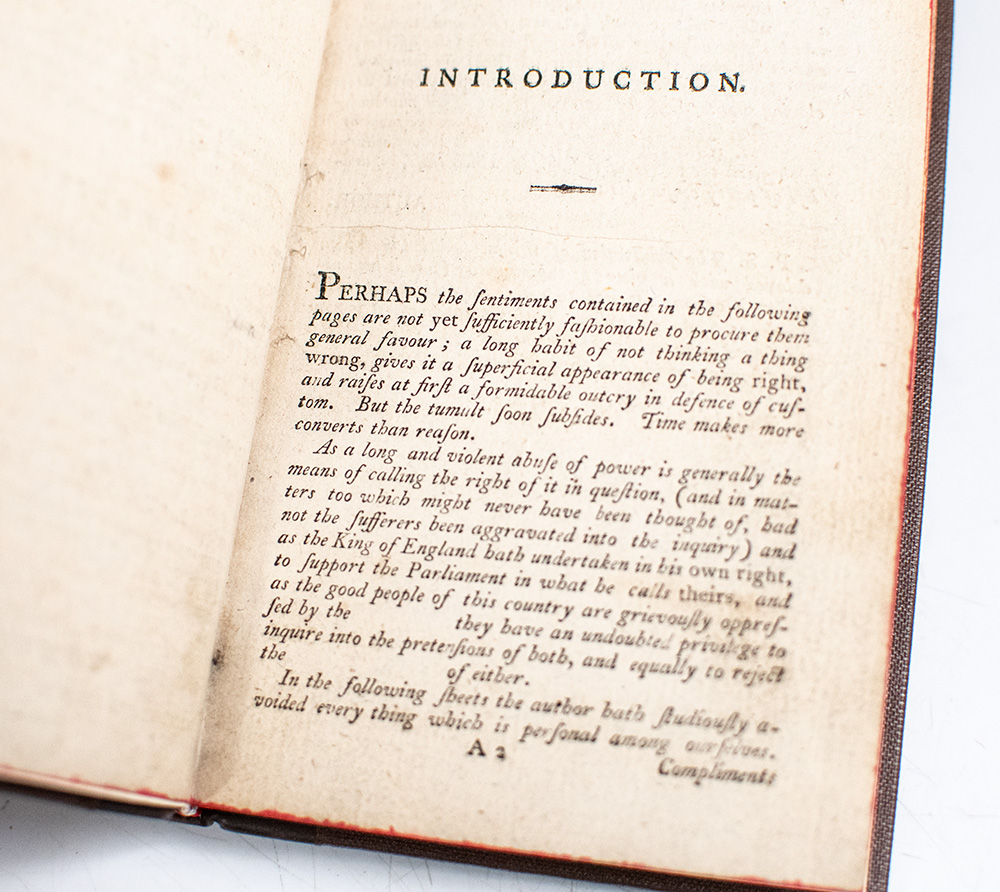 INTRODUCTION.
PERHAPS the ſentiments contained in the following
pages are not yet ſufficiently faſhionable to procure them
general favour; a long habit of not thinking a thing
wrong, gives it a ſuperficial appearance of being right,
and raiſes at firſt a formidable outcry in defence of cuſ-
tom. But the tumult ſoon ſubſides. Time makes more
converts than reaſon.
As a long and violent abuſe of power is generally the
means of calling the right of it in queſtion, (and in mat-
ters too which might never have been thought of, had
not the ſufferers been aggravated into the inquiry) and
as the King of England hath undertaken in his own right,
to ſupport the Parliament in what he calls theirs, and
as the good people of this country are grievouſly oppreſ-
ſed by the they have an undoubted privilege to
inquire into the pretenſions of both, and equally to reject
the of either.
In the following ſheets the author hath ſtudiouſly a-
voided every thing which is perſonal among ourſelves.
A 2
Compliments